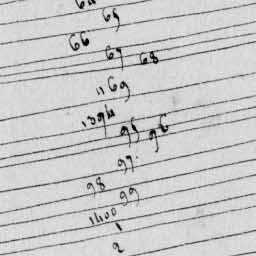 64
65
66
67
68
11 69
1394
95
96
97
98
99
1400
1
2